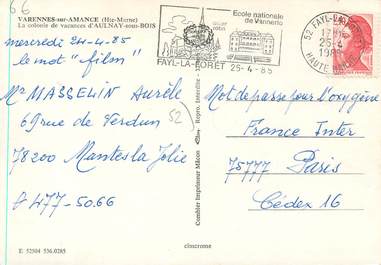 66
VARENNES-sur-AMANCE (Hte-Marne)
La colonie de vacances d'AULNAY-sous-BOIS
mercredi 24-4-85
le mot "film"
Mr MASSELIN Aurèle
69 rue de Verdun
78200 Mantes la Jolie
477-50.66
52
E 52504 536.0285
Combier Imprimeur Mâcon
Repro. Interdite
cimcrome
Ecole nationale
de Vannerie
FAYL-LA-FORET 25-4-85
52 FAYL-LA-FORET
17H
25-4
1985
HAUTE MARNE
Mot de passe pour l'oxygène
France Inter
75777 Paris
Cédex 16